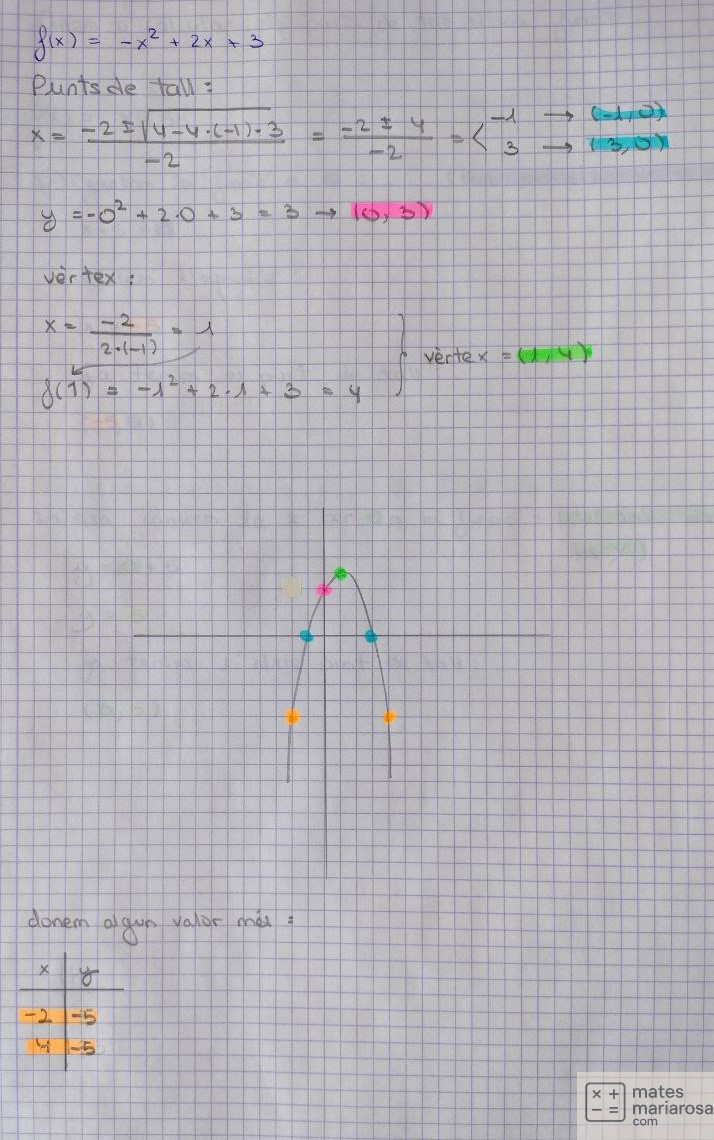 f(x) = -x² + 2x + 3
Punts de tall:
x = (-2 ± √(4-4·(-1)·3))/-2 = (-2 ± 4)/-2 = < -1 → (-1, 0)
3 → (3, 0)
y = -0² + 2·0 + 3 = 3 → (0, 3)
vèrtex:
x = -2/(2·(-1)) = 1
vèrtex = (1, 4)
f(1) = -1² + 2·1 + 3 = 4
donem algun valor més:
x y
-2 -5
4 -5
x + - = mates
mariarosa
com